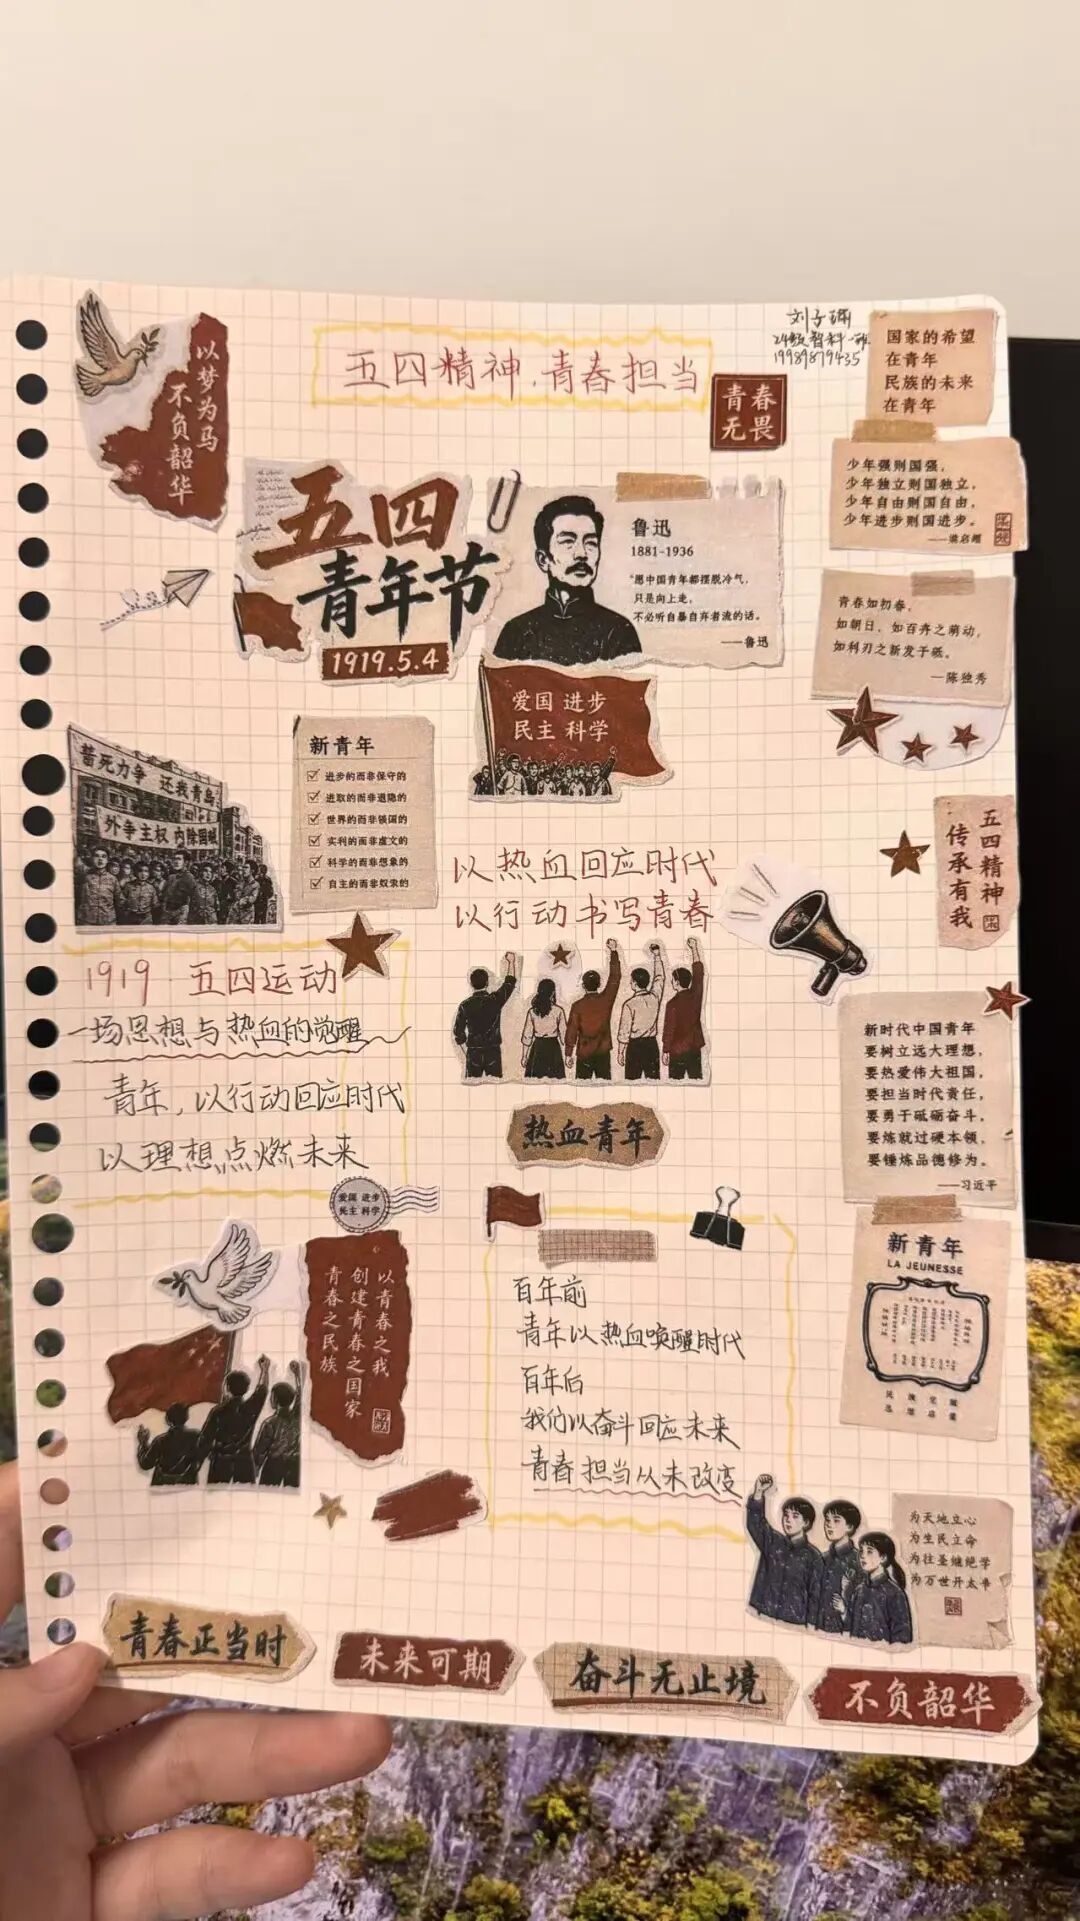 以梦为马
不负韶华
五四精神，青春担当
24级智科一班
19989879435
国家的希望
在青年
民族的未来
在青年
青春
无畏
少年强则国强，
少年独立则国独立，
少年自由则国自由，
少年进步则国进步。
——梁启超
五四
青年节
1919.5.4
鲁迅
1881-1936
"愿中国青年都摆脱冷气，
只是向上走，
不必听自暴自弃者流的话。
——鲁迅
青春如初春，
如朝日，如百卉之萌动，
如利刃之新发于硎。
—陈独秀
爱国 进步
民主 科学
誓死力争 还我青岛
外争主权 内除国贼
新青年
进步的而非保守的
进取的而非退隐的
世界的而非锁国的
实利的而非虚文的
科学的而非想象的
自主的而非奴隶的
五四精神
传承有我
以热血回应时代
以行动书写青春
1919 · 五四运动
一场思想与热血的觉醒
青年，以行动回应时代
以理想点燃未来
热血青年
新时代中国青年
要树立远大理想，
要热爱伟大祖国，
要担当时代责任，
要勇于砥砺奋斗，
要炼就过硬本领，
要锤炼品德修为。
——习近平
爱国 进步
民主 科学
以青春之我
创建青春之国家
青春之民族
百年前
青年以热血唤醒时代
百年后
我们以奋斗回应未来
青春担当从未改变
新青年
LA JEUNESSE
为天地立心
为生民立命
为往圣继绝学
为万世开太平
青春正当时
未来可期
奋斗无止境
不负韶华